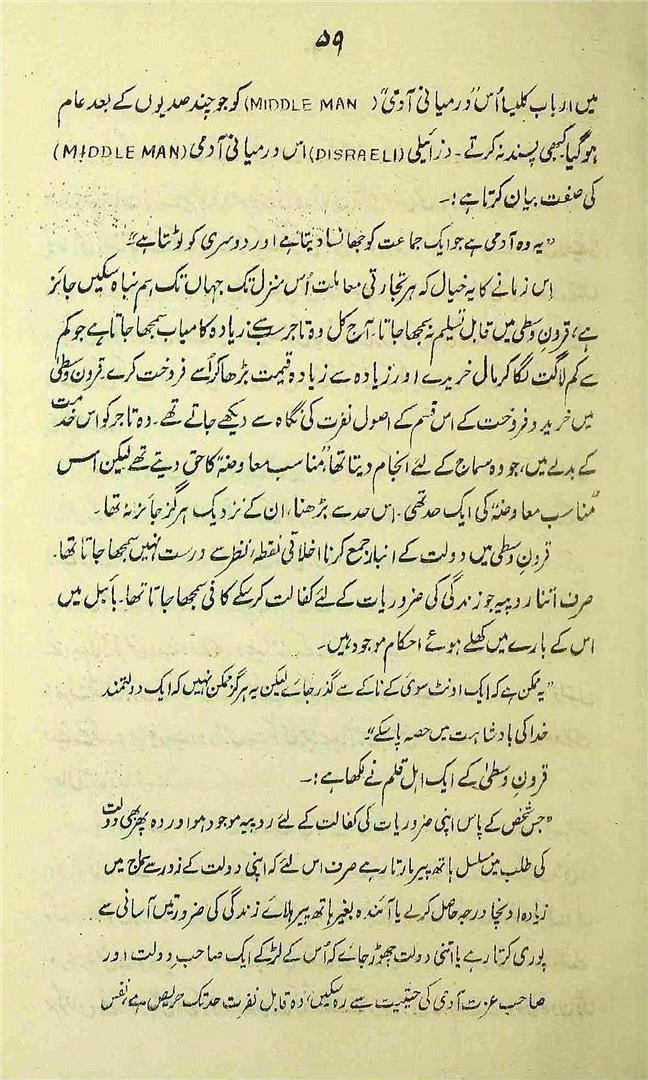 ۵۹
میں ارباب کلیسا اُس "درمیانی آدمی" (MIDDLE MAN) کو جو چند صدیوں کے بعد عام
ہو گیا کبھی پسند نہ کرتے ۔ دزائیلی (DISRAELI) اس درمیانی آدمی (MIDDLE MAN)
کی صفت بیان کرتا ہے :۔
"یہ وہ آدمی ہے جو ایک جماعت کو جھانسا دیتا ہے اور دوسری کو لوٹتا ہے"
اِس زمانے کا یہ خیال کہ ہر تجارتی معاملت اُس منزل تک جہاں تک ہم نباہ سکیں جائز
ہے، قرونِ وسطیٰ میں قابلِ تسلیم نہ سمجھا جاتا ۔ آج کل وہ تاجر سب سے زیادہ کامیاب سمجھا جاتا ہے جو کم
سے کم لاگت لگا کر مال خریدے اور زیادہ سے زیادہ قیمت بڑھا کر اُسے فروخت کرے ۔ قرونِ وسطیٰ
میں خرید و فروخت کے اس قسم کے اصول نفرت کی نگاہ سے دیکھے جاتے تھے ۔ وہ تاجر کو اس خدمت
کے بدلے میں، جو وہ سماج کے لئے انجام دیتا تھا، "مناسب معاوضہ" کا حق دیتے تھے لیکن اس
"مناسب معاوضہ" کی ایک حد تھی ۔ اس حد سے بڑھنا، ان کے نزدیک ہرگز جائز نہ تھا ۔
قرونِ وسطیٰ میں دولت کے انبار جمع کرنا اخلاقی نقطۂ نظر سے درست نہیں سمجھا جاتا تھا ۔
صرف اُتنا روپیہ جو زندگی کی ضروریات کے لئے کفالت کر سکے کافی سمجھا جاتا تھا ۔ بائبل میں
اس کے بارے میں کھلے ہوئے احکام موجود ہیں ۔
"یہ ممکن ہے کہ ایک اونٹ سوئی کے ناکے سے گذر جائے لیکن یہ ہرگز ممکن نہیں کہ ایک دولتمند
خدا کی بادشاہت میں حصہ پا سکے"
قرونِ وسطیٰ کے ایک اہلِ قلم نے لکھا ہے :۔
"جس شخص کے پاس اپنی ضروریات کی کفالت کے لئے روپیہ موجود ہو اور وہ پھر بھی دولت
کی طلب میں مسلسل ہاتھ پیر مارتا رہے صرف اس لئے کہ اپنی دولت کے زور سے سماج میں
زیادہ اونچا درجہ حاصل کر لے یا آئندہ بغیر ہاتھ پیر ہلائے زندگی کی ضرورتیں آسانی سے
پوری کرتا رہے یا اتنی دولت چھوڑ جائے کہ اُس کے لڑکے ایک صاحبِ دولت اور
صاحبِ عزت آدمی کی حیثیت سے رہ سکیں وہ قابلِ نفرت حد تک حریص ہے، نفس